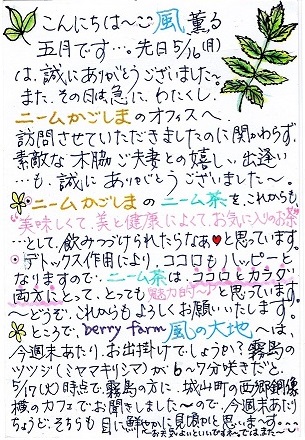 こんにちは〜 風薫る
五月です…。先日5/16(月)
は、誠にありがとうございました〜
また、その日は急に、わたくし、
ニームかごしまのオフィスへ
訪問させていただきましたのに関わらず、
素敵な木脇ご夫妻との嬉しい出逢い
…も、誠にありがとうございました〜。
ニームかごしまのニーム茶を、これからも
美味しくて、美と健康によくてお気に入りのお茶
…として、飲みつづけられたらなぁ♥と思っています。
デトックス作用により、ココロもハッピーと
なりますので、ニーム茶は、ココロとカラダ
両方にとって、とっても魅力的〜♪と思っています
〜どうぞ、これからもよろしくお願いいたします。
ところで、berry farm 風の大地へは、
今週末あたり、お出掛けでしょうか？霧島の
ツツジ(ミヤマキリシマ)が6〜7分咲きだと、
5/17(火)時点で、霧島の方に、城山町の西郷銅像
横のカフェでお聞きしました〜ので、今週末あたり
ちょうど、そちらも目に鮮やかに見頃かと思います…
〜お天気よいといいですね〜